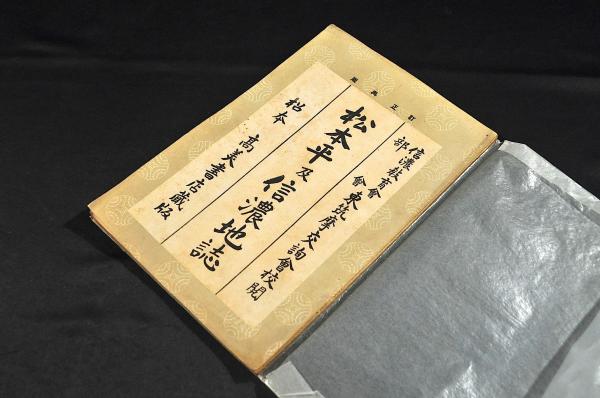 訂正再版
信濃教育會東筑摩部會交詢會校閲
松本平及信濃地誌
松本 高美書店藏版